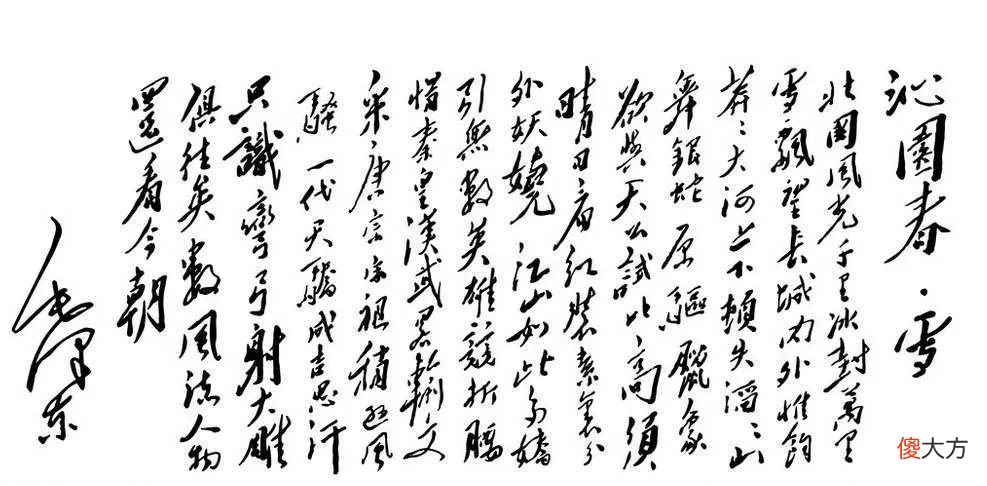 沁園春·雪
北國風光千里冰封萬里
雪飄望長城內外惟餘
莽〻大河上下頓失滔〻山
舞銀蛇原驅臘象
欲與天公試比高須
晴日看紅裝素裹分
外妖嬈江山如此多嬌
引無數英雄競折腰
惜秦皇漢武略輸文
采唐宗宋祖稍遜風
騷一代天驕成吉思汗
只識彎弓射大雕
俱往矣數風流人物
還看今朝
毛澤東
傻大方